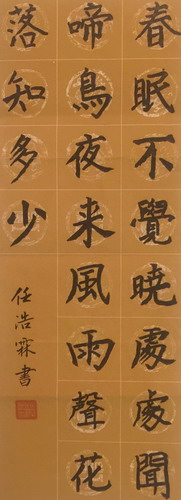 春眠不覺曉處處聞
啼鳥夜来風雨聲花
落知多少
任浩霖書